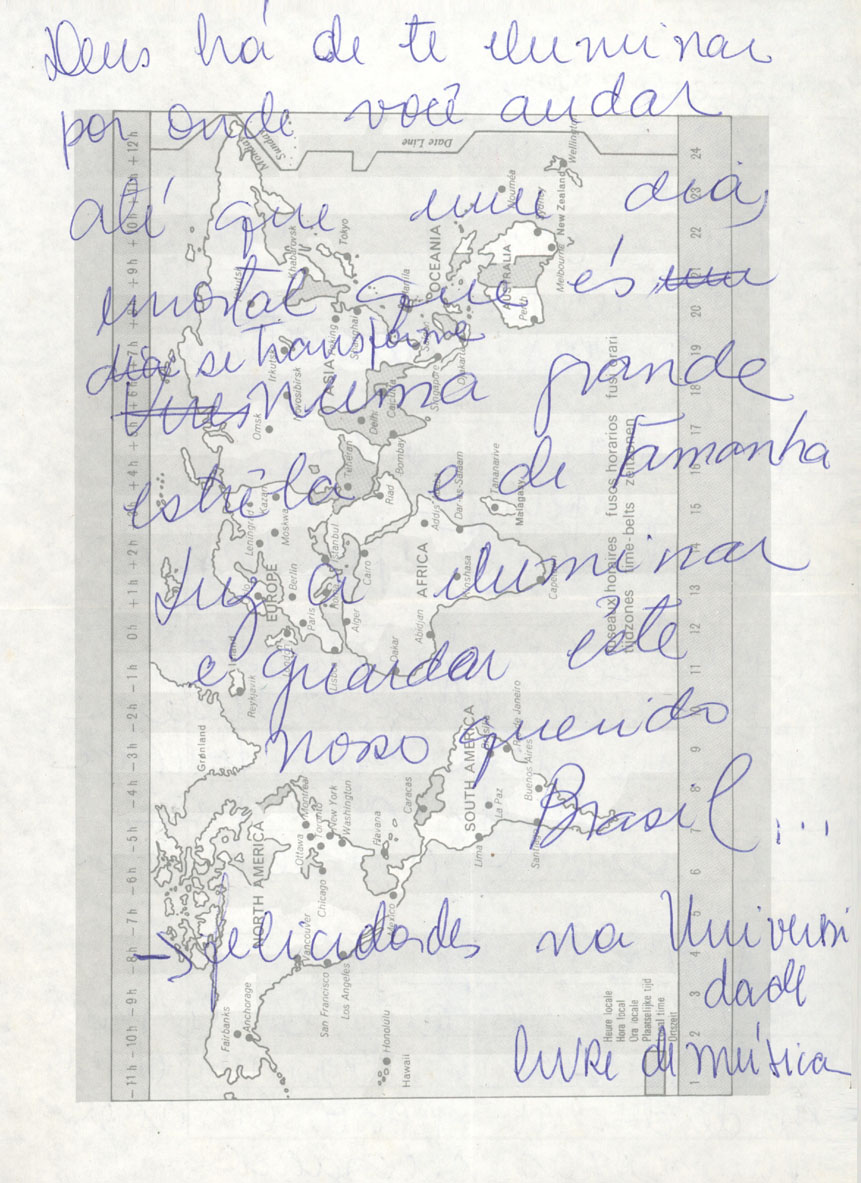 Deus há de te iluminar
por onde você andar
até que um dia,
imortal que és
se transforme
numa grande
estrêla e de tamanha
luz a iluminar
e guardar êste
nosso querido
Brasil...
→ felicidades na Universi
dade
livre de música
-11h -10h -9h -8h -7h -6h -5h -4h -3h -2h -1h 0h +1h +2h +3h +4h +5h +6h +7h +8h +9h +10h +11h +12h
1 2 3 4 5 6 7 8 9 10 11 12 13 14 15 16 17 18 19 20 21 22 23 24
Date Line
Monday
Sunday
NORTH AMERICA
Fairbanks
Anchorage
Vancouver
San Francisco
Los Angeles
Honolulu
Hawaii
Mexico
Chicago
Ottawa
Toronto
Montreal
New York
Washington
Havana
Grønland
SOUTH AMERICA
Caracas
Lima
La Paz
Santiago
Buenos Aires
Rio de Janeiro
Reykjavik
Island
EUROPE
London
Paris
Berlin
Leningrad
Moskwa
Kazan
Istanbul
AFRICA
Dakar
Alger
Abidjan
Cairo
Kinshasa
Capetown
Addis
Dar-es-Salaam
Tananarive
Malagasy
ASIA
Riad
Teheran
Omsk
Novosibirsk
Irkutsk
Bombay
Delhi
Calcutta
Singapore
Djakarta
Peking
Shanghai
Manila
Khabarovsk
Tokyo
OCEANIA
AUSTRALIA
Perth
Melbourne
Sydney
Nouméa
New Zealand
Wellington
fuseaux horaires fusos horários fusi orari
tijdzones time-belts zeitzonen
Heure locale
Hora local
Ora locale
Plaatselijke tijd
Local time
Ortszeit